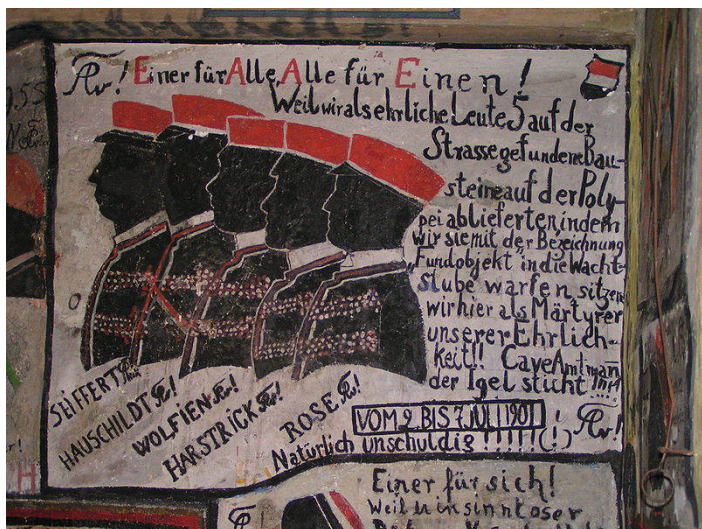 Einer für Alle, Alle für Einen!
Weil wir als ehrliche Leute 5 auf der
Strasse gefundene Bau-
steine auf der Poly-
pei ablieferten, indem
wir sie mit der Bezeichnung
„Fundobjekt" in die Wacht-
stube warfen, sitzen
wir hier als Märtyrer
unserer Ehrlich-
keit!! Cave Amtmann
der Igel sticht
SEIFFERT
HAUSCHILDT
WOLFIEN
HARSTRICK
ROSE
VOM 2. BIS 7. JULI 1901
Natürlich unschuldig !!!!!(!)
Einer für sich!
Weil er in sinnloser
H